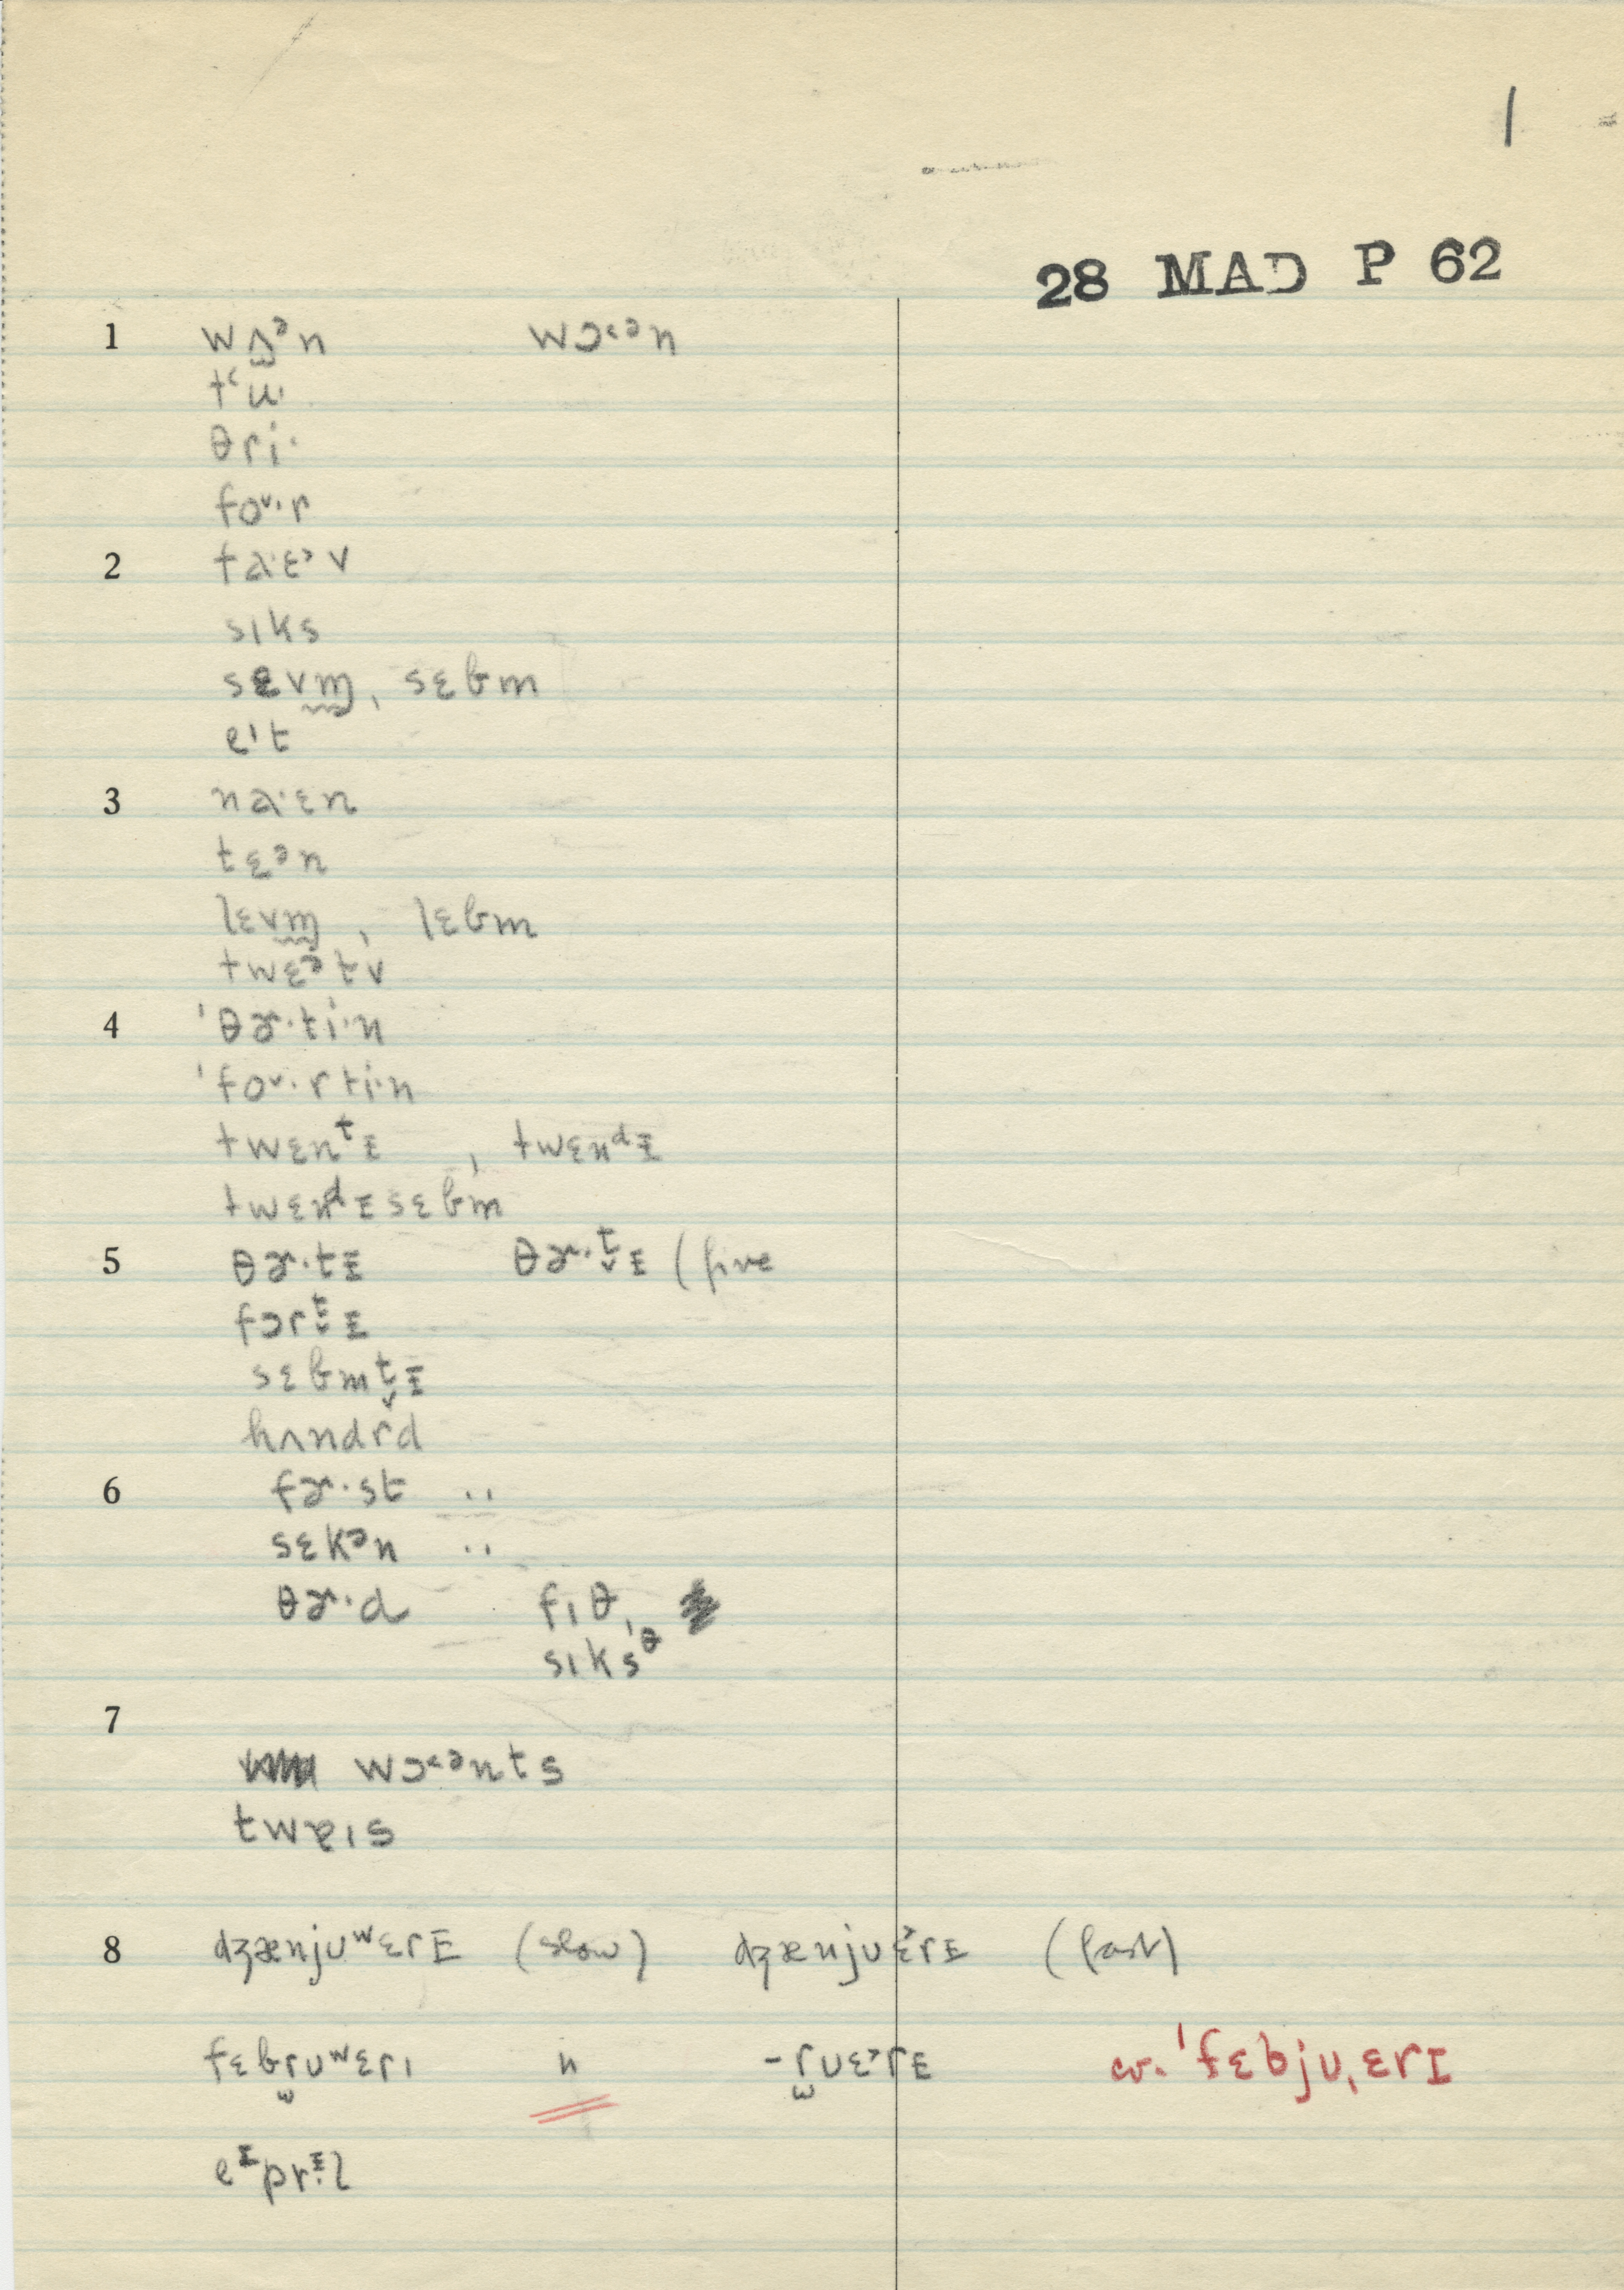 1
28 MAD P 62
1 wʌ̫ᵊn wɔ˂ᵊn
tʿu·
θri·
foᵛ·r
2 fa·ɛ˃v
sɪks
sɛvm̰, sɛbm
eᶦt
3 na·ɛn
tɛᵊn
lɛvm̰, lɛbm
twɛᵊtv
4 'θɚ·ti·n
'foᵛ·rti·n
twɛnᵗɪ, twɛnᵈɪ
twɛnᵈɪsɛbm
5 θɚ·tɪ θɚ·t̬ɪ (five
fɔrt̬ɪ
sɛbmt̬ɪ
hʌndrd
6 fɚ·st ..
sɛkᵊn ..
θɚ·d fɪθ,
sɪks'ᶿ
7
wɔ˂ᵊnts
twɐɪs
8 dʒænjᴜʷɛrɪ (slow) dʒænjᴜɛ˃rɪ (fast)
fɛbr̫ᴜʷɛrɪ " -r̫ᴜɛ˃rɪ cv. 'fɛbjᴜˌɛrɪ
eᶦprɪ·l